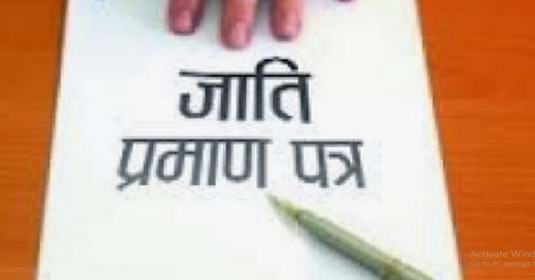 जाति
प्रमाण पत्र
Activate Wind
Go to PC settings t